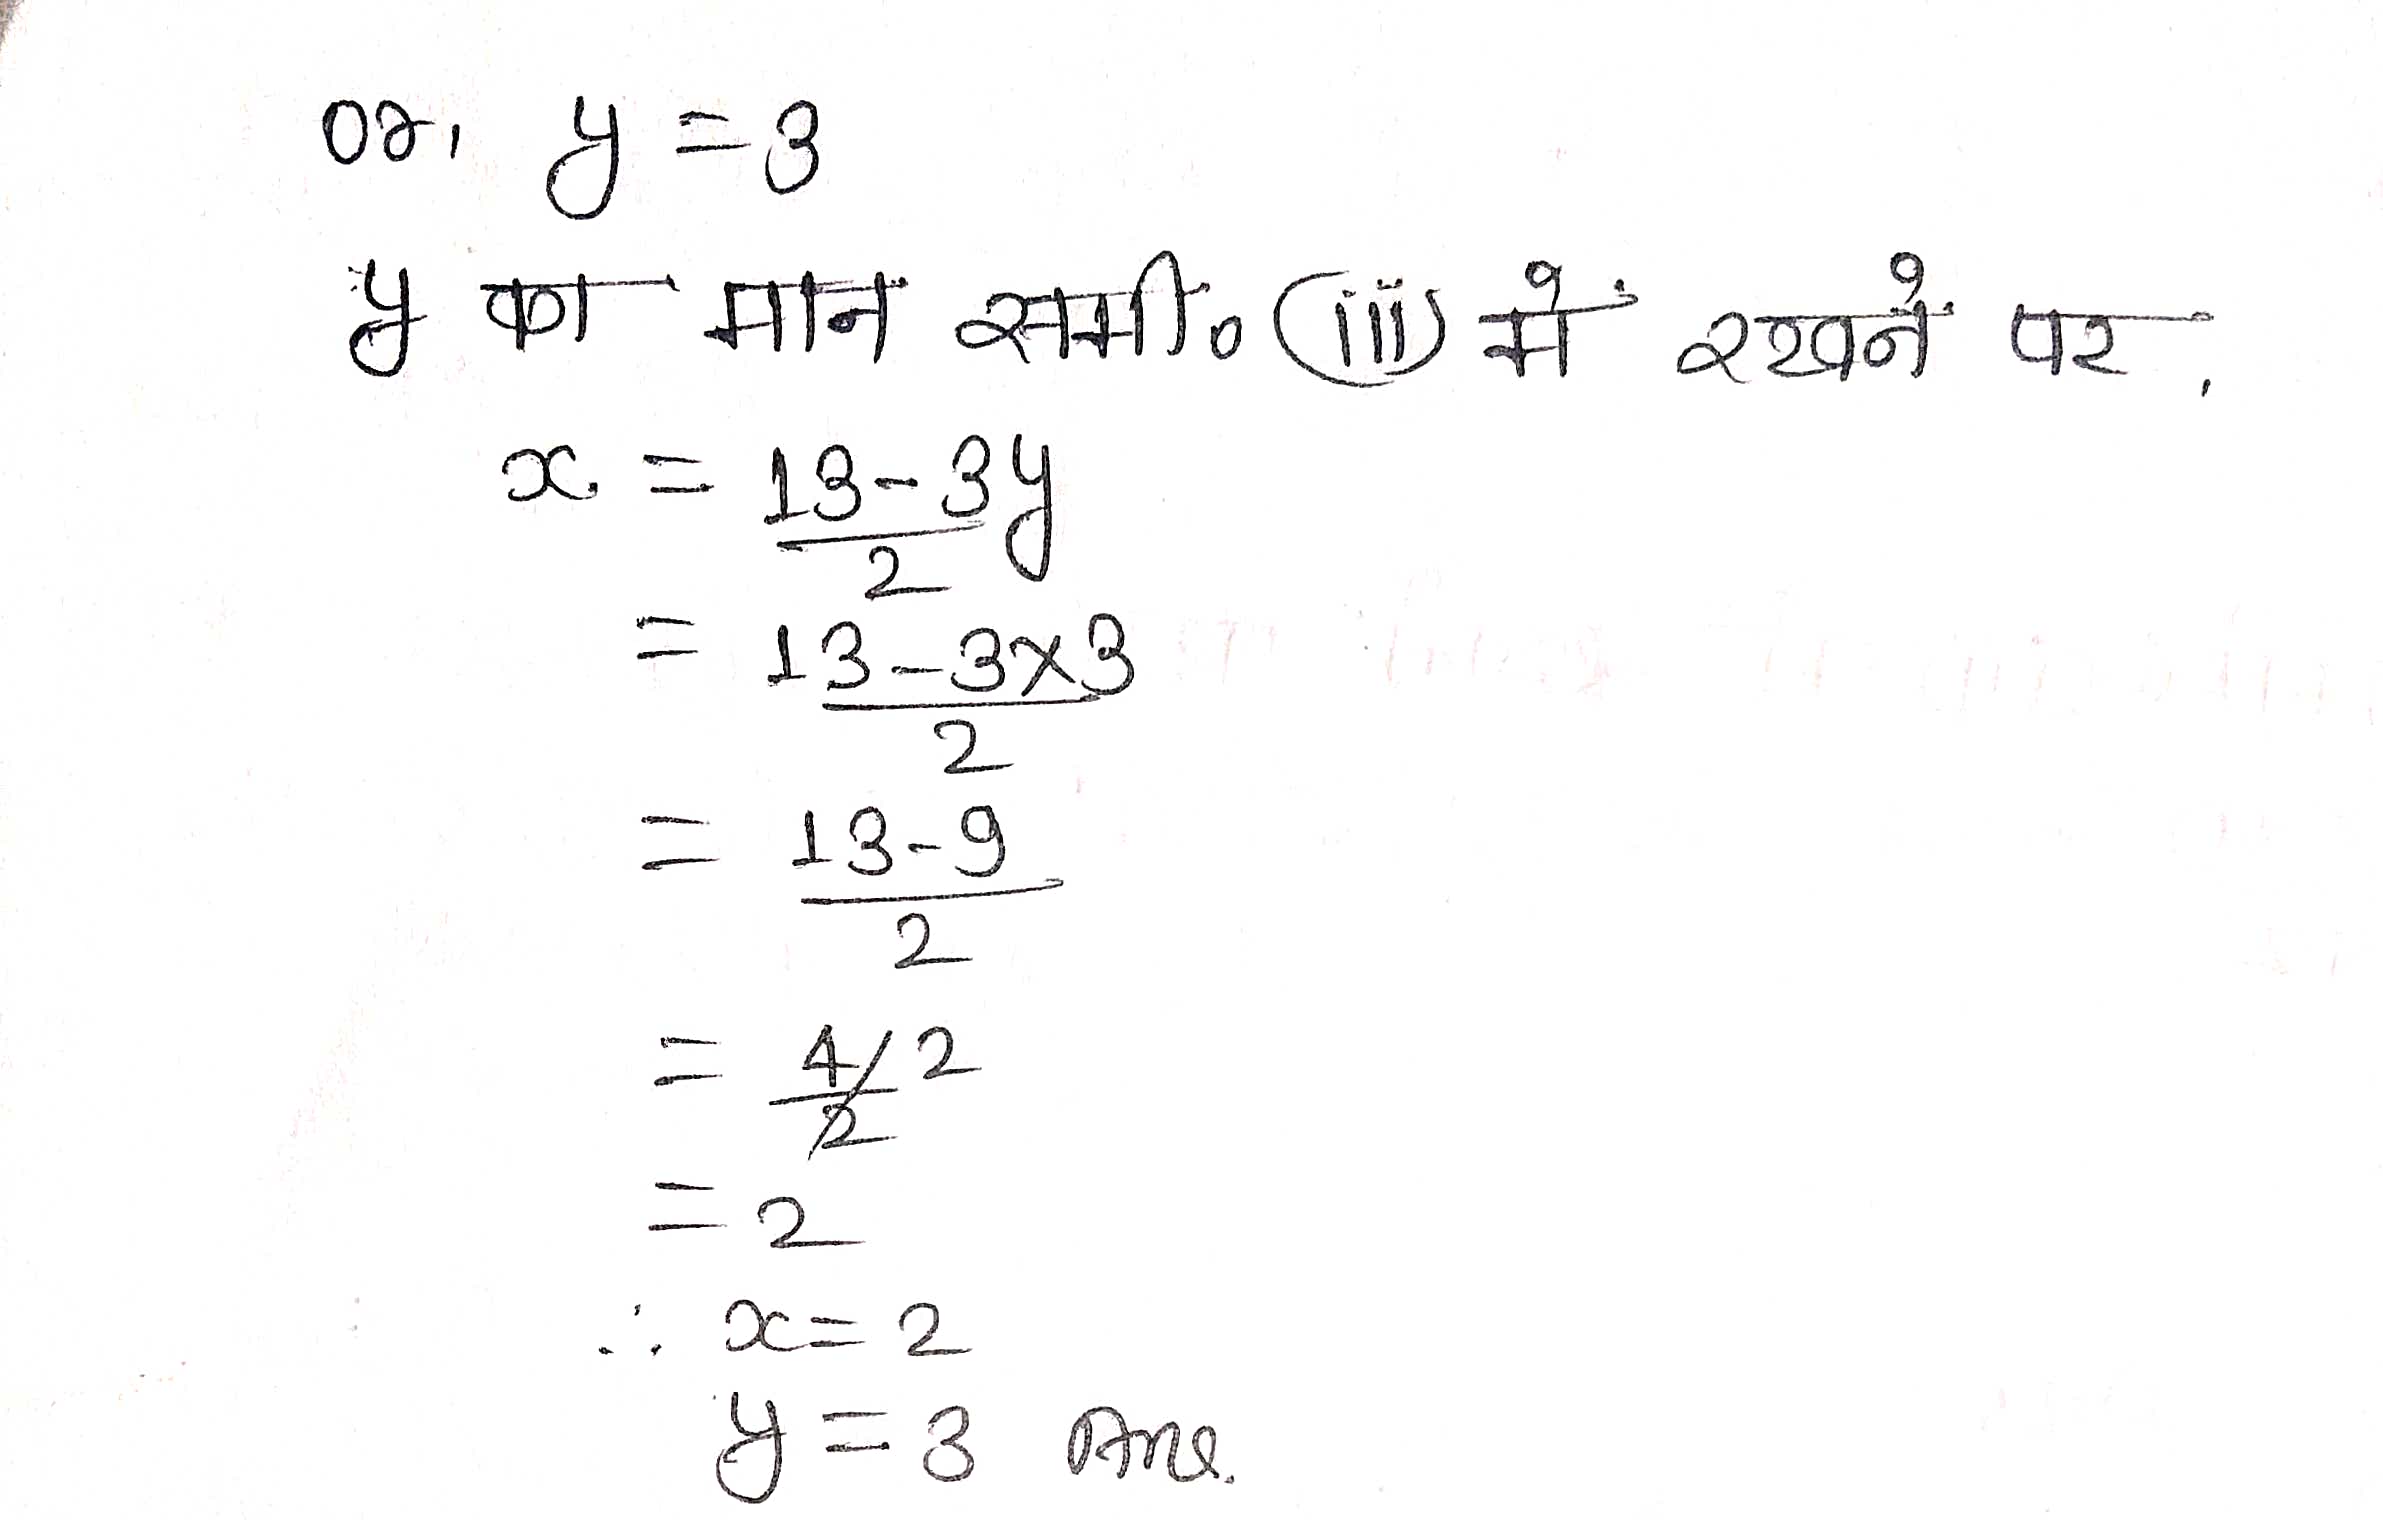 or, y = 3
y का मान समी० (iii) में रखने पर,
x = 13-3y
2
= 13-3×3
2
= 13-9
2
= 4/2 2
= 2
∴ x = 2
y = 3 Ans.